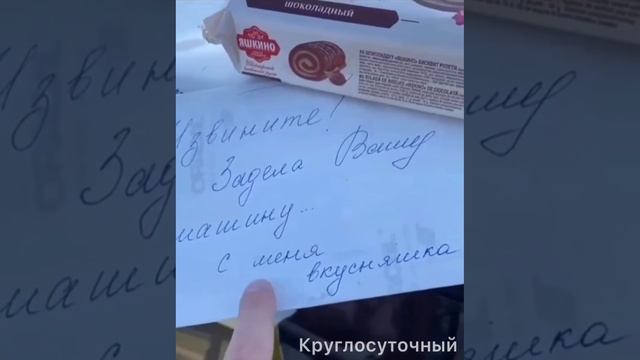 шоколадный
ЯШКИНО
Извините!
Задела Вашу
машину...
с меня
вкусняшка
Круглосуточный